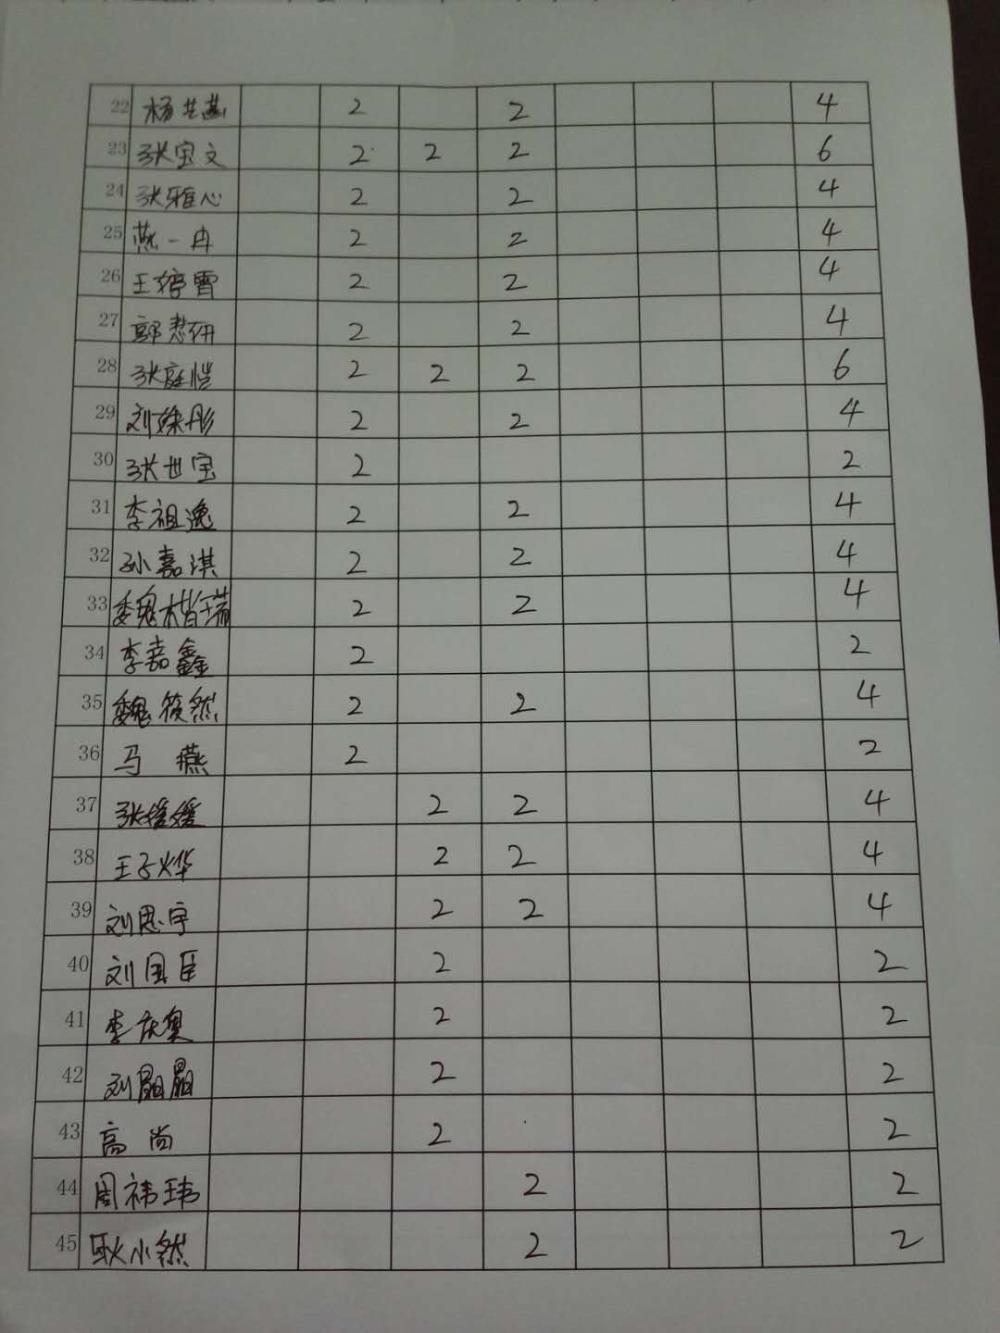 22 杨 2 2 4
23 张宝文 2 2 2 6
24 张雅心 2 2 4
25 燕一冉 2 2 4
26 王婷雪 2 2 4
27 郭慧妍 2 2 4
28 张庭恺 2 2 2 6
29 刘姝彤 2 2 4
30 张世宝 2 2
31 李祖逸 2 2 4
32 孙嘉淇 2 2 4
33 魏楷瑞 2 2 4
34 李嘉鑫 2 2
35 魏筱然 2 2 4
36 马燕 2 2
37 张媛媛 2 2 4
38 王子烨 2 2 4
39 刘思宇 2 2 4
40 刘国臣 2 2
41 李庆奥 2 2
42 刘晶晶 2 2
43 高尚 2 2
44 周祎玮 2 2
45 耿小然 2 2